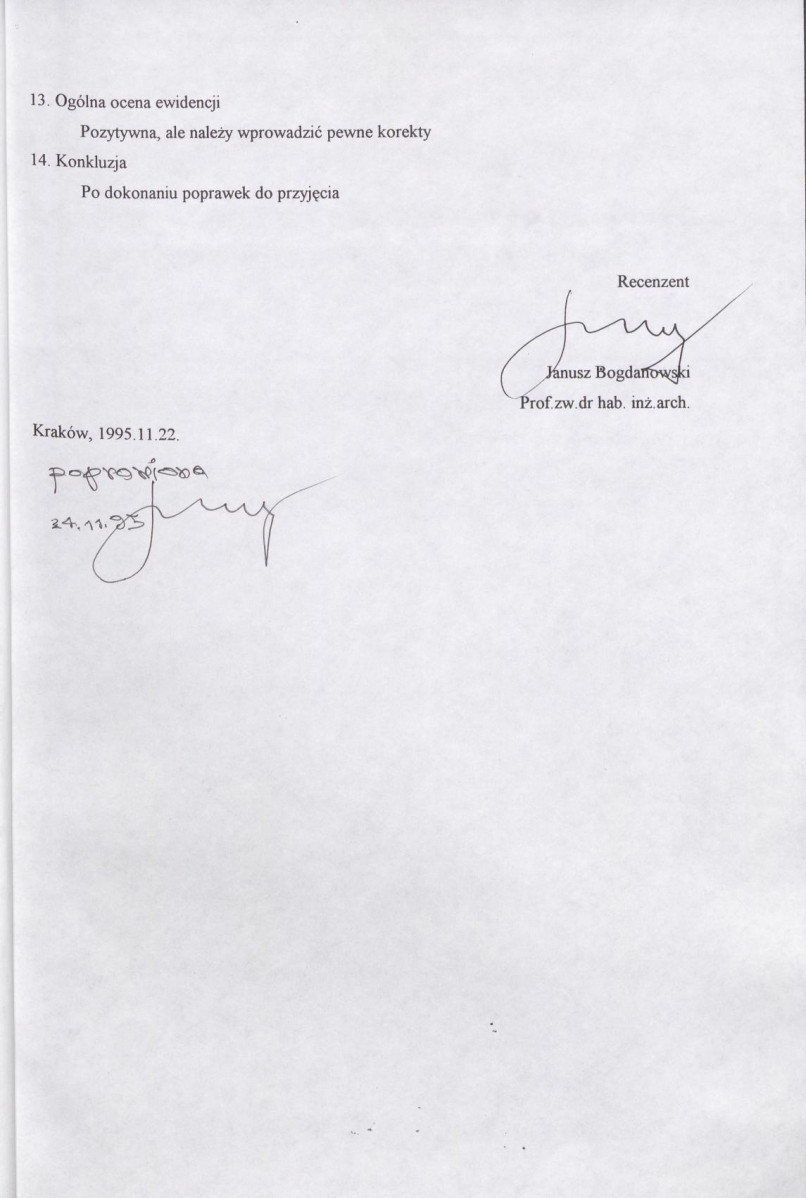 13. Ogólna ocena ewidencji
Pozytywna, ale należy wprowadzić pewne korekty
14. Konkluzja
Po dokonaniu poprawek do przyjęcia
Recenzent
Janusz Bogdanowski
Prof.zw.dr hab. inż.arch.
Kraków, 1995.11.22.
poprawiona
24.11.95